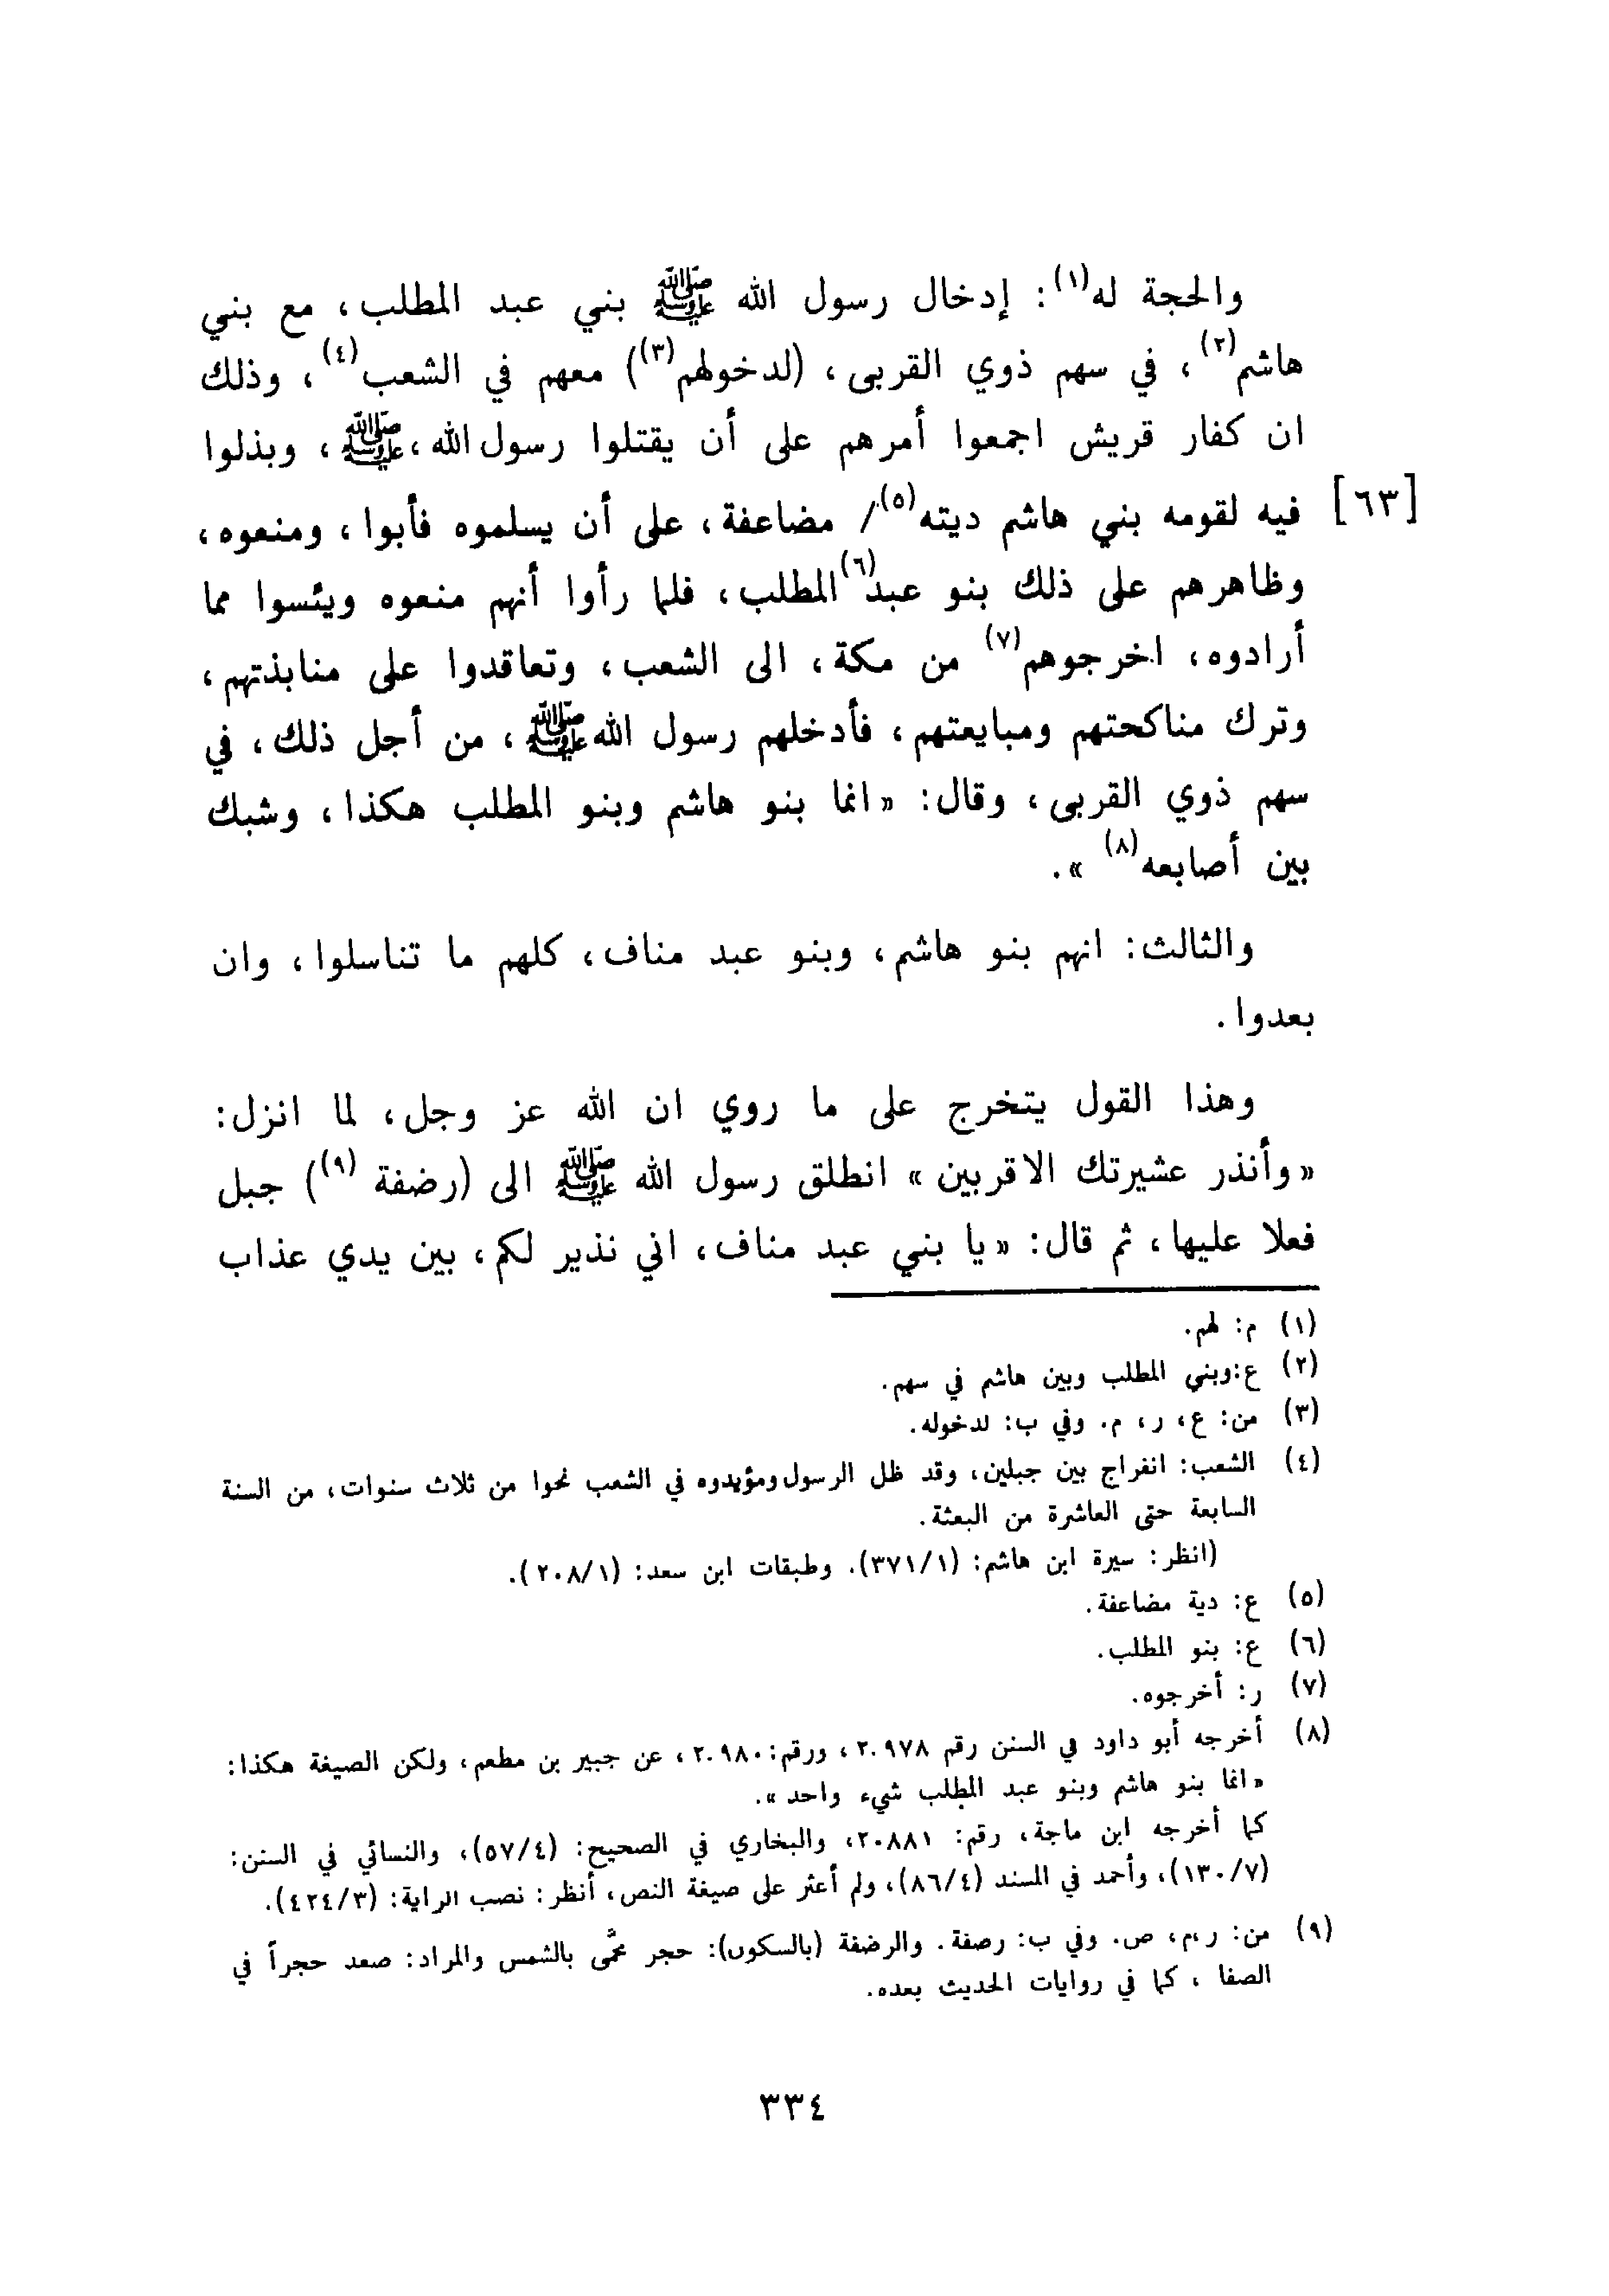 والحجة له(١): إدخال رسول الله ﷺ بني عبد المطلب، مع بني
هاشم(٢)، في سهم ذوي القربى، (لدخولهم(٣)) معهم في الشعب(٤)، وذلك
ان كفار قريش اجمعوا أمرهم على أن يقتلوا رسول الله، ﷺ، وبذلوا
[٦٣] فيه لقومه بني هاشم ديته(٥)/ مضاعفة، على أن يسلموه فأبوا، ومنعوه،
وظاهرهم على ذلك بنو عبد(٦) المطلب، فلما رأوا أنهم منعوه ويئسوا مما
أرادوه، اخرجوهم(٧) من مكة، الى الشعب، وتعاقدوا على منابذتهم،
وترك مناكحتهم ومبايعتهم، فأدخلهم رسول الله ﷺ، من أجل ذلك، في
سهم ذوي القربى، وقال: «انما بنو هاشم وبنو المطلب هكذا، وشبك
بين أصابعه(٨) ».
والثالث: انهم بنو هاشم، وبنو عبد مناف، كلهم ما تناسلوا، وان
بعدوا.
وهذا القول يتخرج على ما روي ان الله عز وجل، لما انزل:
«وأنذر عشيرتك الاقربين» انطلق رسول الله ﷺ الى (رضفة (٩)) جبل
فعلا عليها، ثم قال: «يا بني عبد مناف، اني نذير لكم، بين يدي عذاب
(١) م: لهم.
(٢) ع:وبني المطلب وبين هاشم في سهم.
(٣) من: ع، ر، م. وفي ب: لدخوله.
(٤) الشعب: انفراج بين جبلين، وقد ظل الرسول ومؤيدوه في الشعب نحوا من ثلاث سنوات، من السنة
السابعة حتى العاشرة من البعثة.
(انظر: سيرة ابن هاشم: (٣٧١/١). وطبقات ابن سعد: (٢٠٨/١).
(٥) ع: دية مضاعفة.
(٦) ع: بنو المطلب.
(٧) ر: أخرجوه.
(٨) أخرجه أبو داود في السنن رقم ٢.٩٧٨، ورقم: ٢.٩٨٠، عن جبير بن مطعم، ولكن الصيغة هكذا:
«انما بنو هاشم وبنو عبد المطلب شيء واحد».
كما أخرجه ابن ماجة، رقم: ٢٠٨٨١، والبخاري في الصحيح: (٥٧/٤)، والنسائي في السنن:
(١٣٠/٧)، وأحمد في المسند (٨٦/٤)، ولم أعثر على صيغة النص، أنظر: نصب الراية: (٤٢٤/٣).
(٩) من: ر،م، ص. وفي ب: رصفة. والرضفة (بالسكون): حجر محمَّى بالشمس والمراد: صعد حجراً في
الصفا، كما في روايات الحديث بعده.
٣٣٤